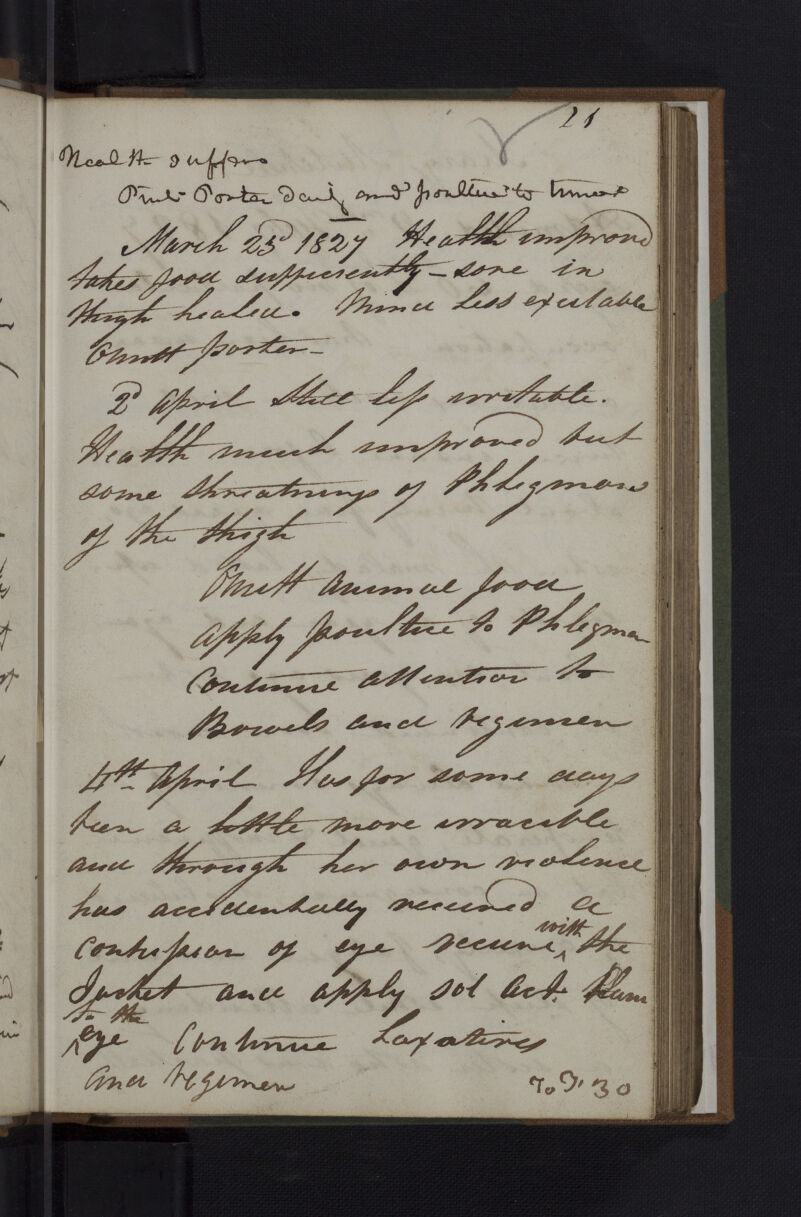 21
Health suffers
Pint Porter daily and poultice to tumor
March 23d 1827 Health improved
takes food sufficiently – sore in
thigh healed. Mind less excitable
Omitt porter –
2d April Still less irritable.
Health much improved but
some threatnings of Phlegmon
of the thigh
Omitt animal food
apply poultice to Phlegmon
Continue attention to
Bowels and regimen
4th April Has for some days
been a little more irracible
and through her own violence
has accidentally received a
contusion of eye secure with the
Jacket and apply sol Act. Plum
to the
eye Continue Laxatives
and regimen
To 30